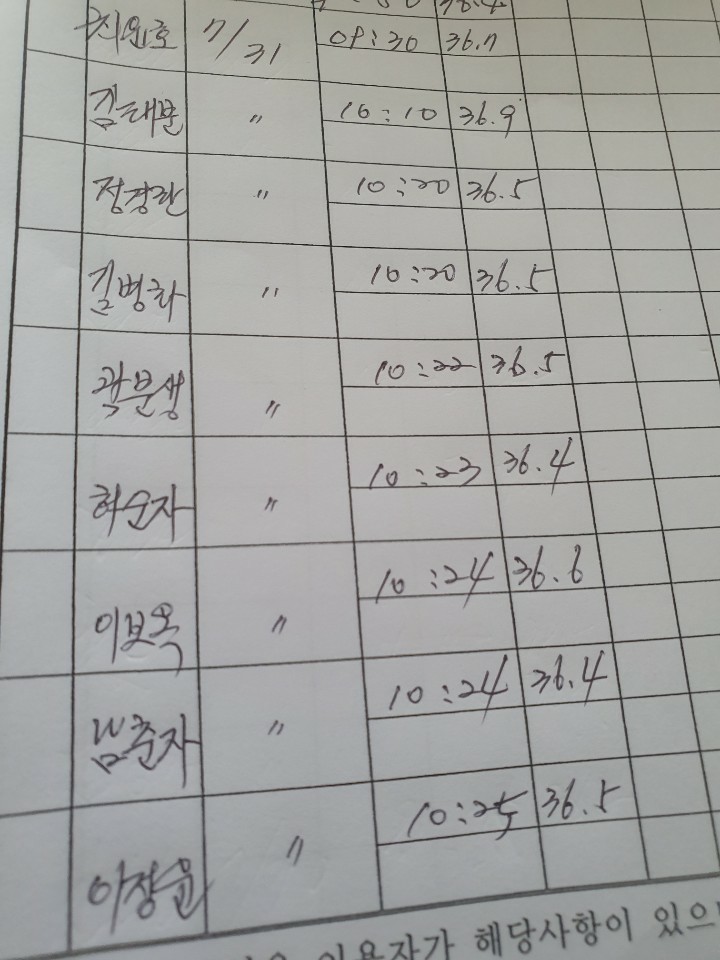 최윤호 7/31 09:30 36.7
김태분 〃 10:10 36.9
정경란 〃 10:20 36.5
길병화 〃 10:20 36.5
곽분생 〃 10:22 36.5
허순자 〃 10:23 36.4
이보옥 〃 10:24 36.6
남춘자 〃 10:24 36.4
이장윤 〃 10:25 36.5
이용자가 해당사항이 있으